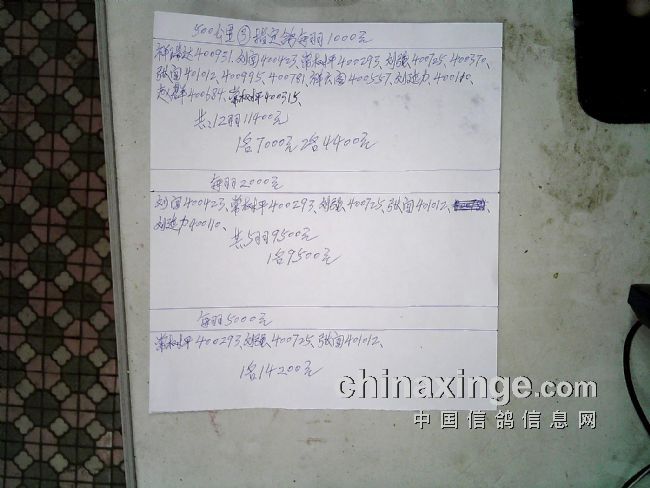 500公里⑤指定鸽每羽1000元
祥瑞达400931、刘闯400423、常树平400293、刘强400725、400370、
张闯401012、400995、400781、祥云阁400567、刘建力、400110、
400684、常树平400315、
共:12羽11400元
1名7000元 2名4400元
每羽2000元
刘闯400423、常树平400293、刘强400725、张闯401012、
刘建力400110、
共5羽9500元
1名9500元
每羽5000元
常树平400293、刘强400725、张闯401012、
1名14200元
chinaxinge.com
中国信鸽信息网